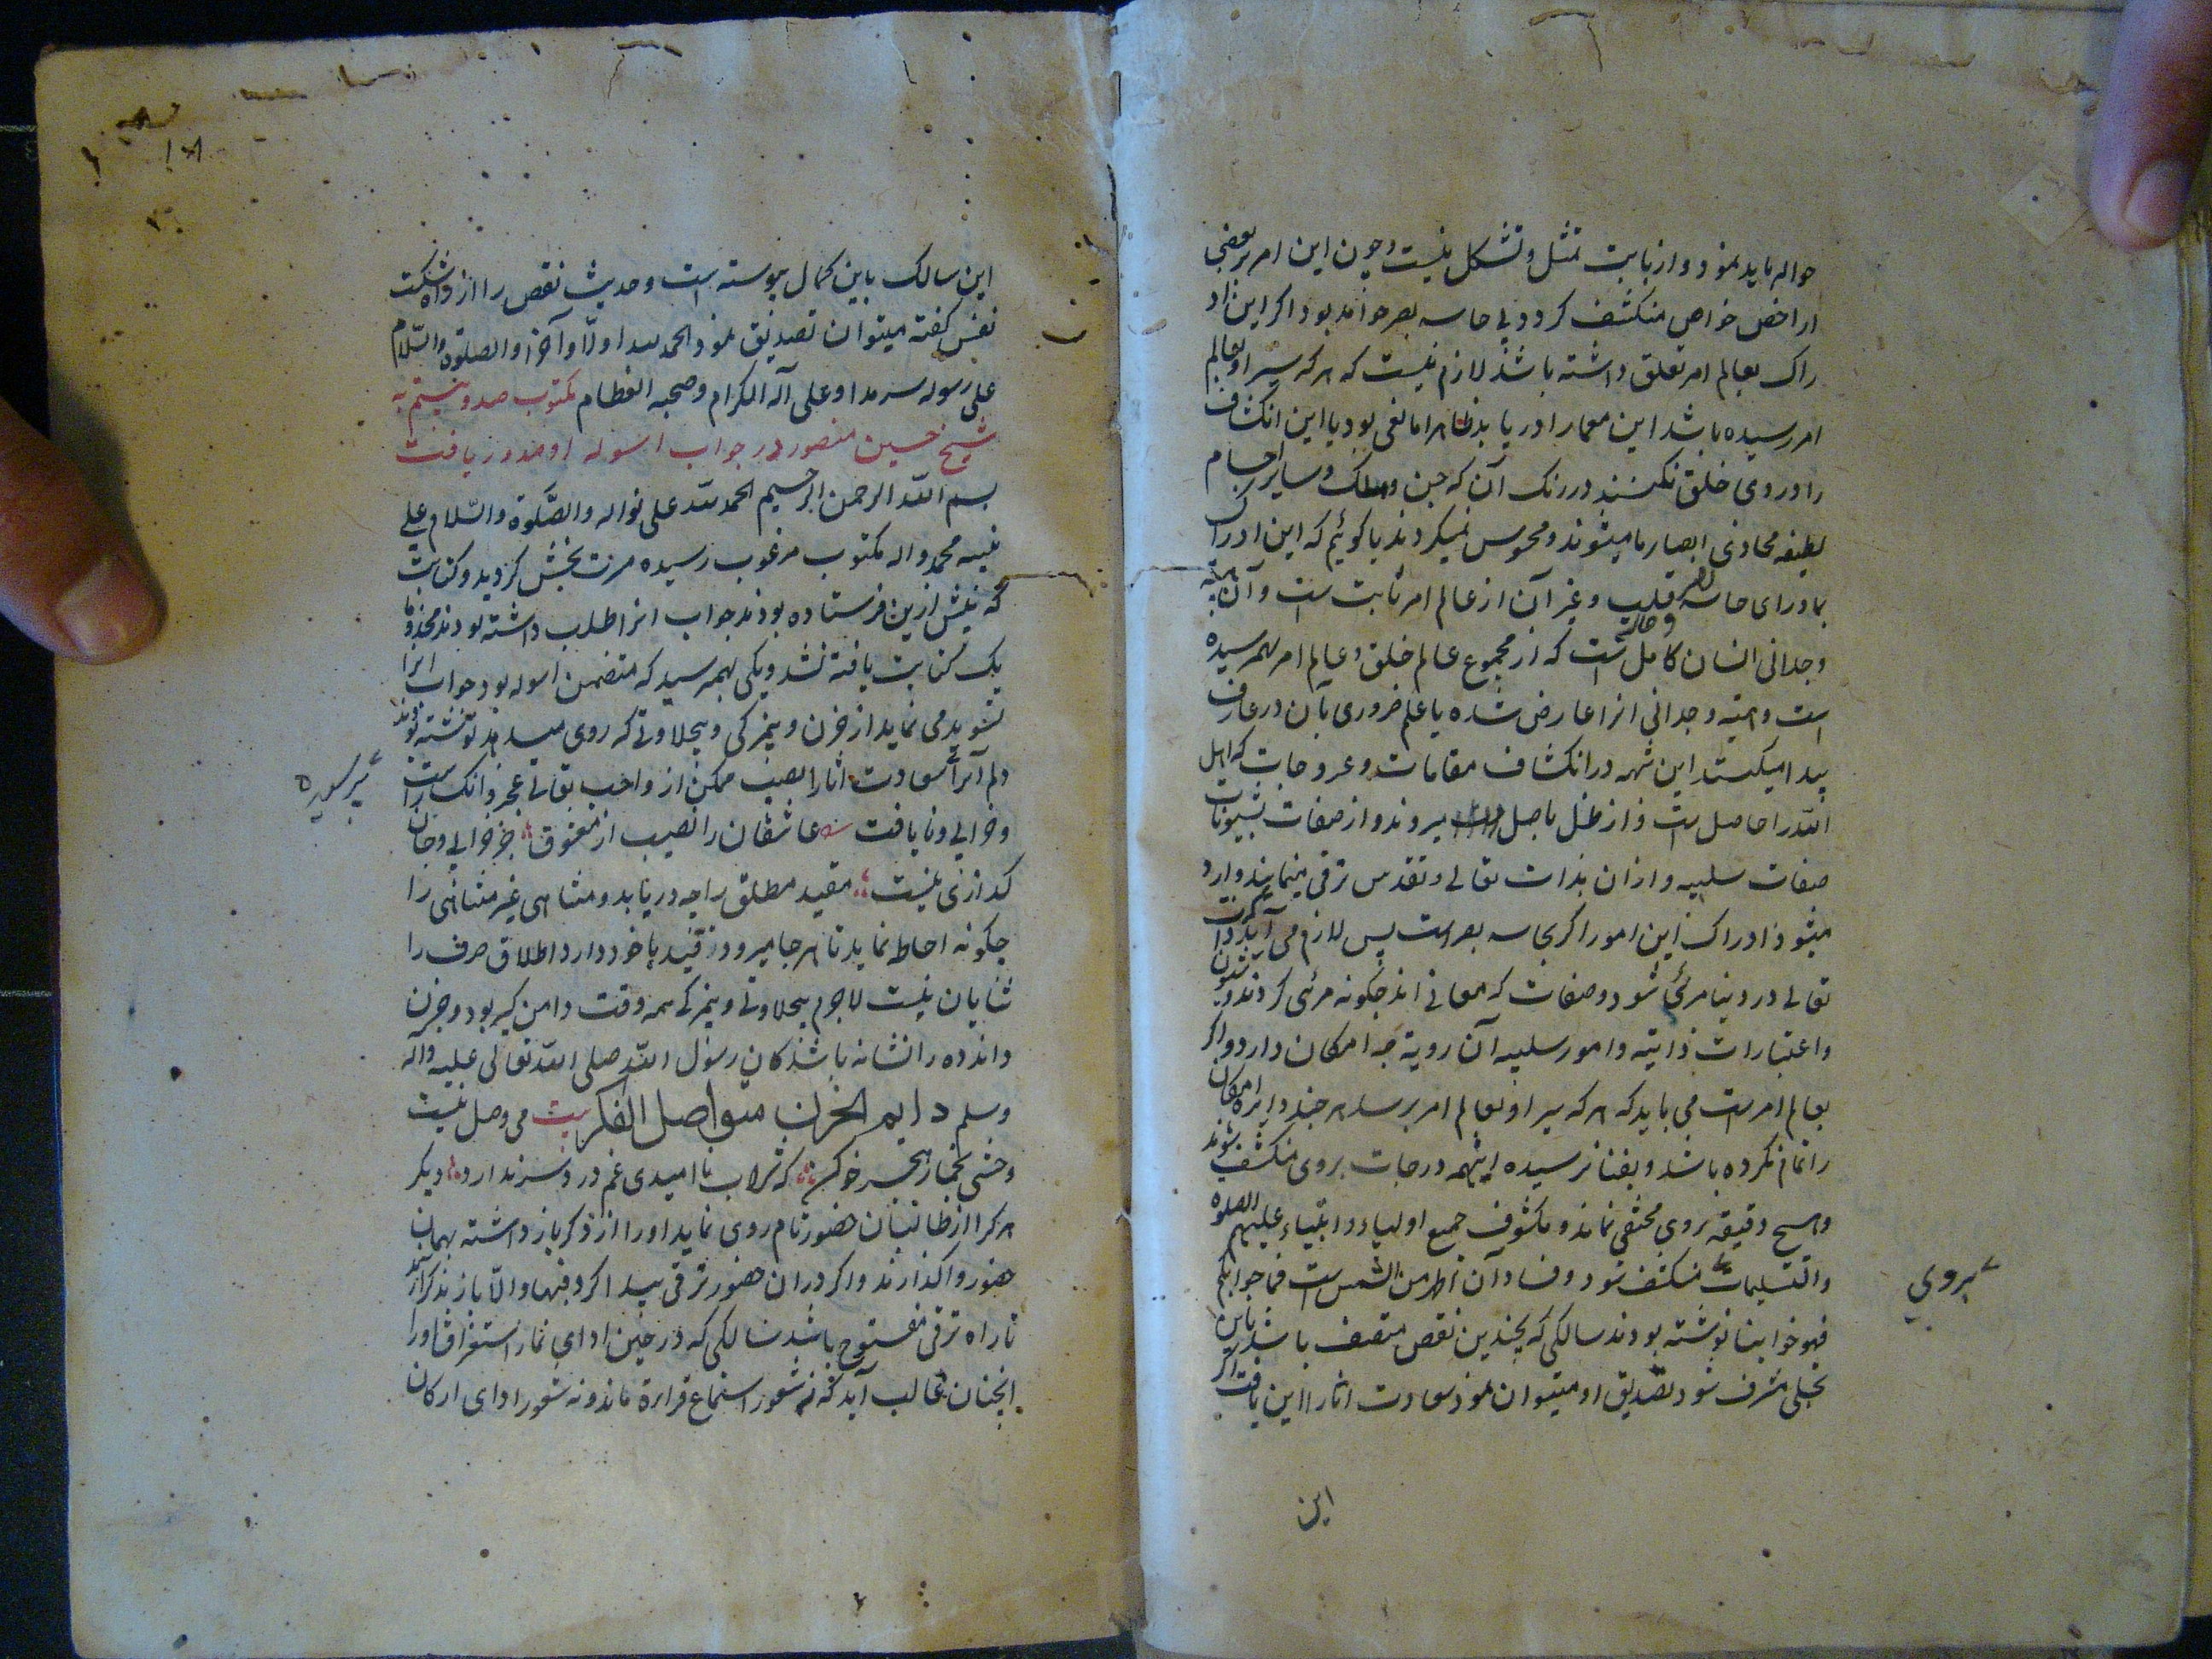 حواله باید نمود و از بابت تمثل و تشکل نیست و چون این امر بر بعضی
از اخص خواص منکشف کردد بی حاسه بصر خواهد بود اکر این اد
راک بعالم امر تعلق داشته باشد لازم نیست که هر که سیر او بعالم
امر رسیده باشد این معما را دریابد ظاهرا مانعی بود یا این انکشاف
را در وی خلق نکنند در رنک آن که جن و ملک و سایر اجسام
لطیفه محاذی ابصار ما میشوند و محسوس نمیکردند یا کوئیم که این ادراک
بماورای حاسه قلب و غیر آن از عالم امر ثابت ست و آن هیئة
و حالت
وجدانی انسان کامل ست که از مجموع عالم خلق و عالم امر بهم رسیده
است و هیئه وجدانی انرا عارض شده یا علم ضروری بآن در عارف
پیدا میکنند این شبهه در انکشاف مقامات و عروجات که اهل
الله را حاصل ست و از ظل باصل میروند و از صفات بشیونات
صفات سلبیه و از ان بذات تعالی و تقدس ترقی مینمایند وارد
میشود ادراک این امور اکر بحاسه بصر است پس لازم می آید که ذات
تعالی در دنیا مرئی شود و صفات که معانی اند چکونه مرئی کردند و شیون
و اعتبارات ذاتیه و امور سلبیه آن رویة چه امکان دارد و اکر
بعالم امر ست می باید که هر که سیر او بعالم امر برسد هر چند دایره امکان
را تمام نکرده باشد و بفنا نرسیده اینهمه درجات بروی منکشف شوند
و هیچ دقیقه بروی مختفی نماند و مکشوف جمیع اولیاء و انبیاء علیهم الصلوة
والتسلیمات منکشف شود و فساد آن اظهر من الشمس ست فما جوابکم
بروی
فهو جوابنا نوشته بودند سالکی که بچندین نقص متصف باشد باین
تجلی مشرف شود تصدیق او میتوان نمود سعادت اثارا این یافت اکر
این
این سالک باین کمال پیوسته است و حدیث نقص را از راه شکست
نفس کفته میتوان تصدیق نمود الحمد لله اولا و آخرا والصلوة والسلام
علی رسوله سرمدا و علی آله الکرام و صحبه العظام مکتوب صد و بیستم به
شیخ حسین منصور در جواب اسوله او صدور یافت
بسم الله الرحمن الرحیم الحمد لله علی نواله والصلوة والسلام علی
نبیه محمد و اله مکتوب مرغوب رسیده مسرت بخش کردید و کتابت
که پیش ازین فرستاده بودند جواب انرا طلب داشته بودند مخدوما
یک کتابت یافته نشد و یکی بهم رسید که متضمن اسوله بود جواب انرا
تسوید می نماید از حزن و بیمزکی و بیحلاوتی که روی میدهد نوشته بودند
و الم آنرا سعادت اثارا نصیب ممکن از واجب تعالی عجز و انکسار ست
پرسیده
و خرابی و نایافت عاشقان را نصیب از معشوق جز خرابی و جان
کدازی نیست مقید مطلق را چه دریابد و متناهی غیر متناهی را
چکونه احاطه نماید تا هر جا میرود تقید با خود دارد اطلاق صرف را
شایان نیست لاجرم بیحلاوتی و بیمزکی همه وقت دامن کیر بود و حزن
و اندوه را نشانه باشد کان رسول الله صلی الله تعالی علیه و آله
وسلم دایم الحزن متواصل الفکر بیت می وصل نیست
وحشی بخمار هجر خو کن که شراب نا امیدی غم درد سر ندارد دیکر
هر کرا از طالبان حضور تام روی نماید او را از ذکر باز داشته بهمان
حضور واکذارند و اکر دران حضور ترقی پیدا کرد فبها و الا باز بذکر آرند
تا راه ترقی مفتوح باشد سالکی که در حین ادای نماز استغراق او را
انچنان غالب آید که نه شعور استماع قراءة ماند و نه شعور ادای ارکان